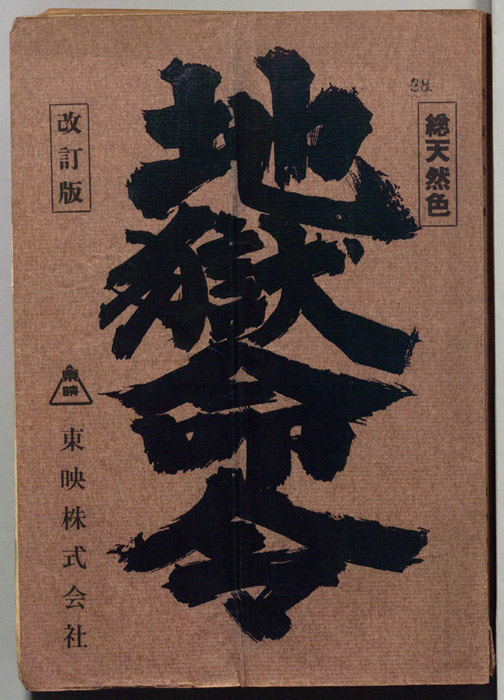 総天然色
地獄命令
改訂版
東映
東映株式会社